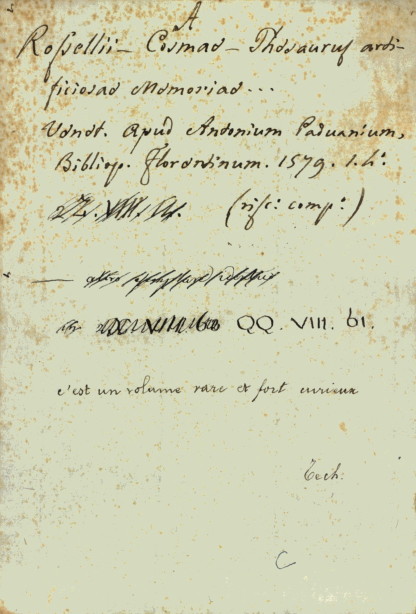 A
Rossellii - Cosmae - Thesaurus arti-
ficiosae Memoriae...
Venet. Apud Antonium Paduanium,
Bibliop. Florentinum. 1579. 1. h:
(risc: comp:)
QQ. VIII. 61.
c'est un volume rare et fort curieux
Tech:
C